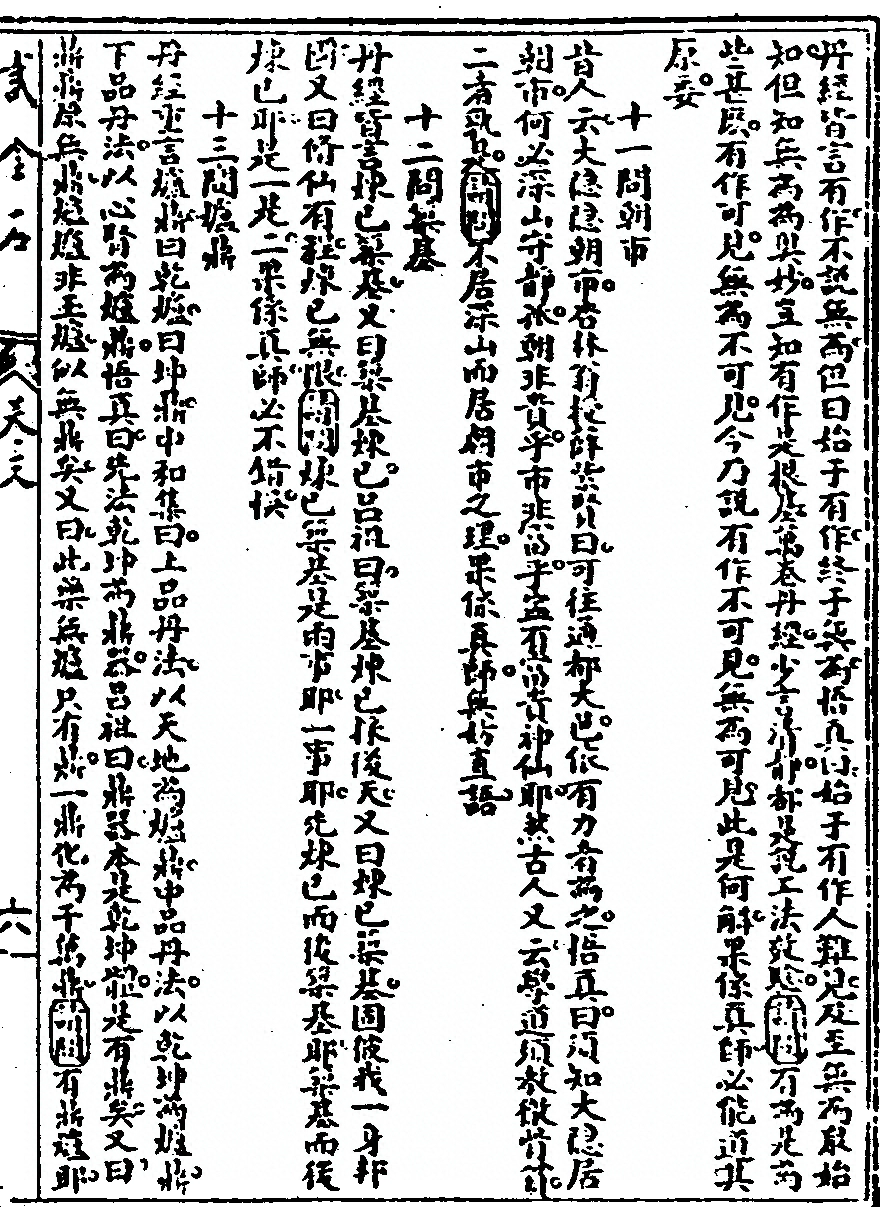 丹經皆言有作不説無為但曰始于有作終于無為悟真詩始于有作人難見及至無為眾始
知但知無為為奥妙豈知有作是根基萬卷丹經少言清靜都是說工法效驗請問有為是為
些甚麽有作可見無為不可見今乃說有作不可見無為可見此是何解果係真師必能道其
原委
十一問朝市
昔人云大隱隱朝市杏林翁授薛紫賢曰可往通都大邑依有力者為之悟真曰須知大隱居
朝市何必深山守靜孤朝非貴乎市非富乎豈有富貴神仙耶然古人又云學道須教徹骨貧
二者孰是請問不居深山而居朝市之理果係真師無妨直語
十二問築基
丹經皆言煉己築基又曰築基煉己呂祖曰築基煉己採後天又曰煉己築基固彼我一身邦
國又曰修仙有程煉己無限請問煉己築基是兩事耶一事耶先煉己而後築基耶築基而後
煉己耶是一是二果係真師必不錯悞
十三問爐鼎
丹經重言爐鼎曰乾爐曰坤鼎中和集曰上品丹法以天地為爐鼎中品丹法以乾坤為爐鼎
下品丹法以心腎為爐鼎悟真曰先法乾坤為鼎器呂祖曰鼎器本是乾坤體是有鼎矣又曰
鼎鼎原無鼎爐爐非玉爐似無鼎矣又曰此藥無爐只有鼎一鼎化為千萬鼎請問有鼎爐耶
天元
六一